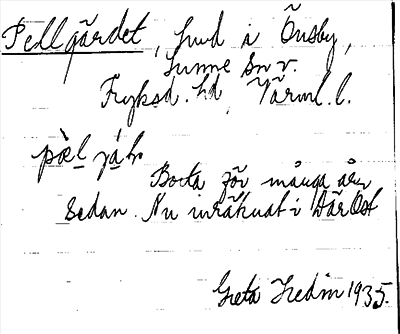 Pellgärdet, hmd i Önsby,
Sunne sn v.
Fryksd. hd, Värml. l.
pæ̀l jáḷ
Borta för många år
sedan. Nu inräknat i Där Öst
Greta Hedin 1935.